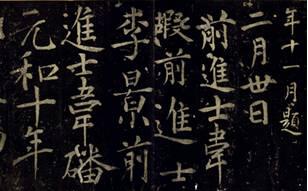 年十一月題
二月廿日
前進士韋
暇前進士
李景前
進士韋磻
元和十年